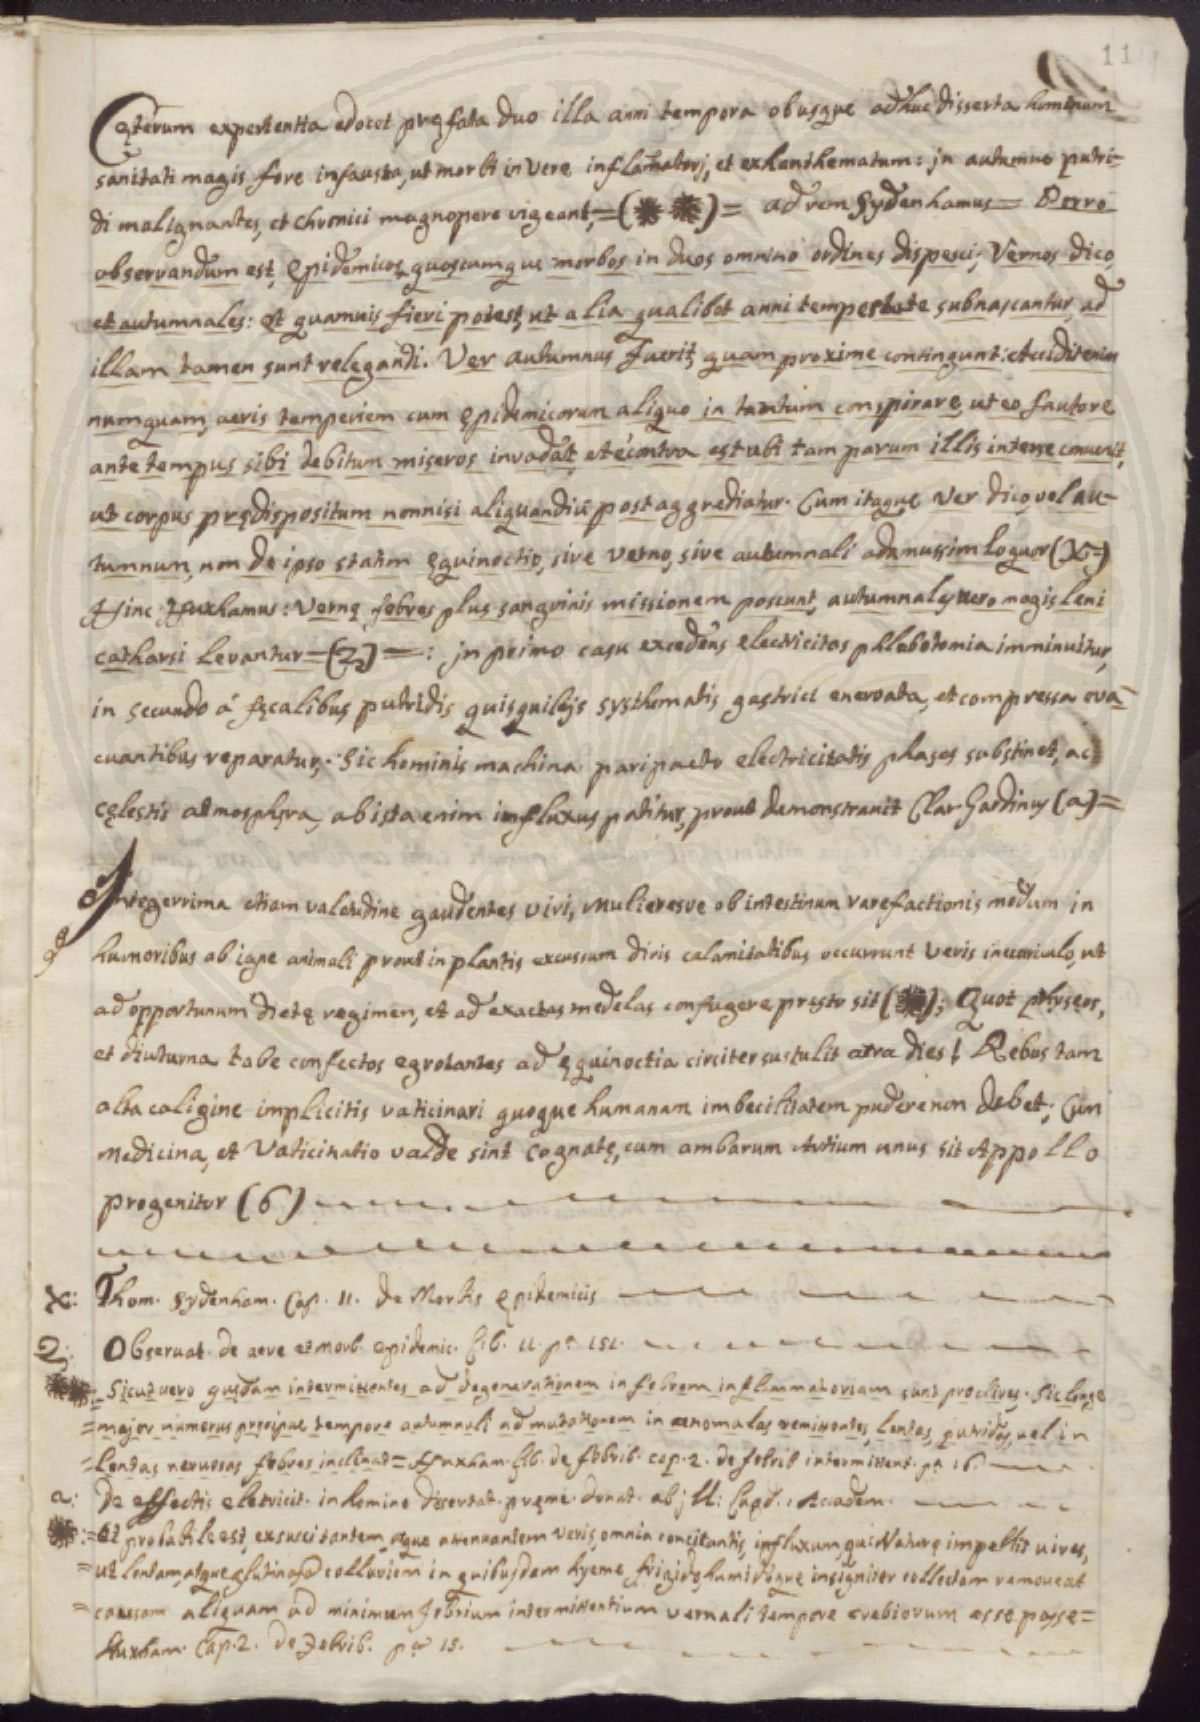 11
Cęterum experientia edocet pręfata duo illa anni tempora obusque adhuc disserta hominum
sanitati magis fore infausta, ut morbi in Vere inflammatorj, et exhenthematum: jn autumno putri=
di malignantes, et chronici magnopere vigeant,=(✱✱)= ad rem Sydenhamus= Porro
observandum est, epidemicos quoscumque morbos in duos omnino ordines dispesci; Vernos dico,
et autumnales: et quamuis fieri potest, ut alia qualibet anni tempestate subnascantur, ad
illam tamen sunt relegandi. Ver autumnus fuerit, quam proxime contingunt: Accidit enim
numquam, aeris temperiem cum epidemicorum aliquo in tantum conspirare, ut eo fautore
ante tempus sibi debitum miseros invadat, et écontra est ubi tam parum illis interse convenit,
ut corpus prędispositum nonnisi aliquandiú post aggrediatur. Cum itaque Ver dico, vel au=
tumnum, non de ipso statim ęquinoctio, sive verno, sive autumnali adamussim loquor (X=)
Hinc Huxhamus: Vernę febres plus sanguinis missionem poscunt, autumnales vero magis leni
catharsi levantur=(2)=: jn primo casu excedens electricitas phlebotomia imminuitur,
in secundo á fęcalibus putridis quisquilijs systhematis gastrici enervata, et compressa eva=
cuantibus reparatur. Sic hominis machina pari pacto electricitatis phases substinet, ac
cęlestis atmosphęra, ab ista enim influxus patitur, prout demonstravit Clar Gardinus (a)=
Jntegerrima etiam valetudine gaudentes viri, mulieresve ob intestinum rarefactionis motum in
humoribus ab igne animali prout in plantis excussum diris calamitatibus occurrunt veris incuriculo, ut
ad opportunum dietę regimen, et ad exactas medelas confugere pręsto sit (✱); Quot physeos,
et diuturna tabe confectos egrotantes ad ęquinoctia circiter sustulit atra dies! Rebus tam
alta caligine implicitis vaticinari quoque humanam imbecilitatem pudere non debet; Cum
Medicina, et Vaticinatio valde sint cognatę, cum ambarum Artium unus sit Appollo
progenitor (6)
X: Thom. Sydenham. Cap. II. de Morbis epidemicis
2: Observat. de aere et morb. epidemic. Lib. II. pa. 151.
✱✱: Sicut vero quędam intermittentes ad degenerationem in febrem inflammatoriam sunt proclives. Sic longe
=major numerus pręcipue tempore autumnali ad mutationem in anomalas remittentes, lentas, putridas, vel in
=Lentas nervosas febres inclinat= Huxham. Lib. de febrib. cap. 2. de febrib intermittent. pa. 16.
a: De effectis eletricit. in homine dissertat. pręmi. donat. ab j U: Lugd.: Accadem.
✱:=Et probabile est, exsuscitantem, atque attenuantem veris, omnia concitantis, influxum, qui Naturę impellit vires,
=ut lentam, atque glutinosam colluviem in quibusdam hyeme frigido, humidoque insigniter collectam removeat
=caussam aliquam ad minimum febrium intermittentium vernali tempore crebiorum esse posse=
Huxham. Cap. 2. De Febrib. pa. 15.